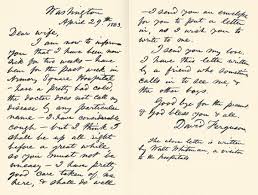 Washington
April 29th 1863.
Dear wife,
I am now to inform
you that I have been now
sick for two weeks – have
been for the past week in
Armory Square Hospital –
have a pretty bad cold,
the doctor does not call my
disease by any particular
name – I have considerable
cough – but I think I
shall be up all right
before a great while
so you must not be
uneasy – I have pretty
good care taken of me
here, & shall do well
– I send you an envelope
for you to put a letter
in, as I wish you to
write to me.
I send you my love.
I have this letter written
by a friend who sometimes
calls in to see me &
the other boys.
Good bye for the present
& God bless you & all
David Ferguson
the above letter is written
by Walt Whitman, a visitor
to the hospitals